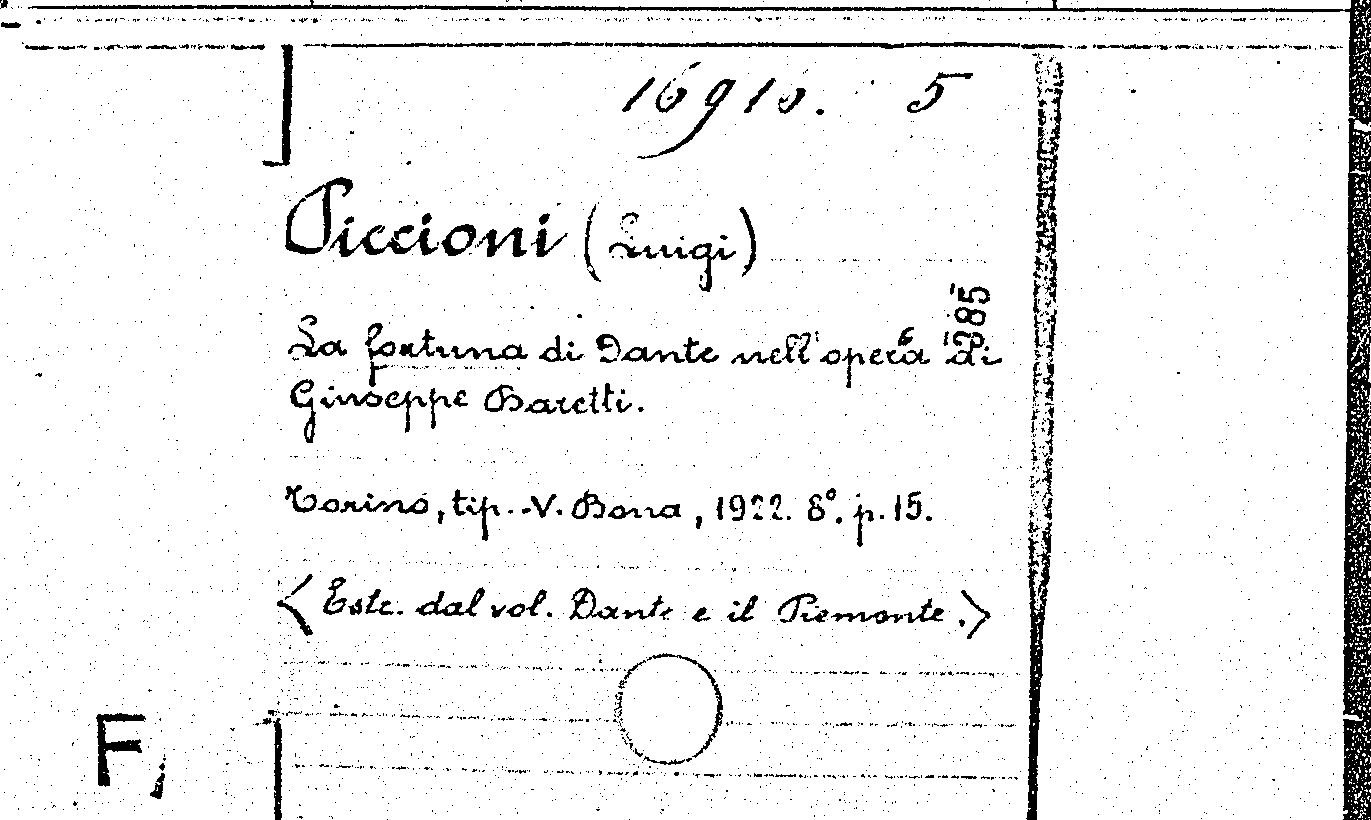 16916. 5
Piccioni (Luigi)
385
La fortuna di Dante nell'opera di
Giuseppe Baretti.
Torino, tip. V. Bona, 1922. 8°. p. 15.
<Estr. dal vol. Dante e il Piemonte.>
F